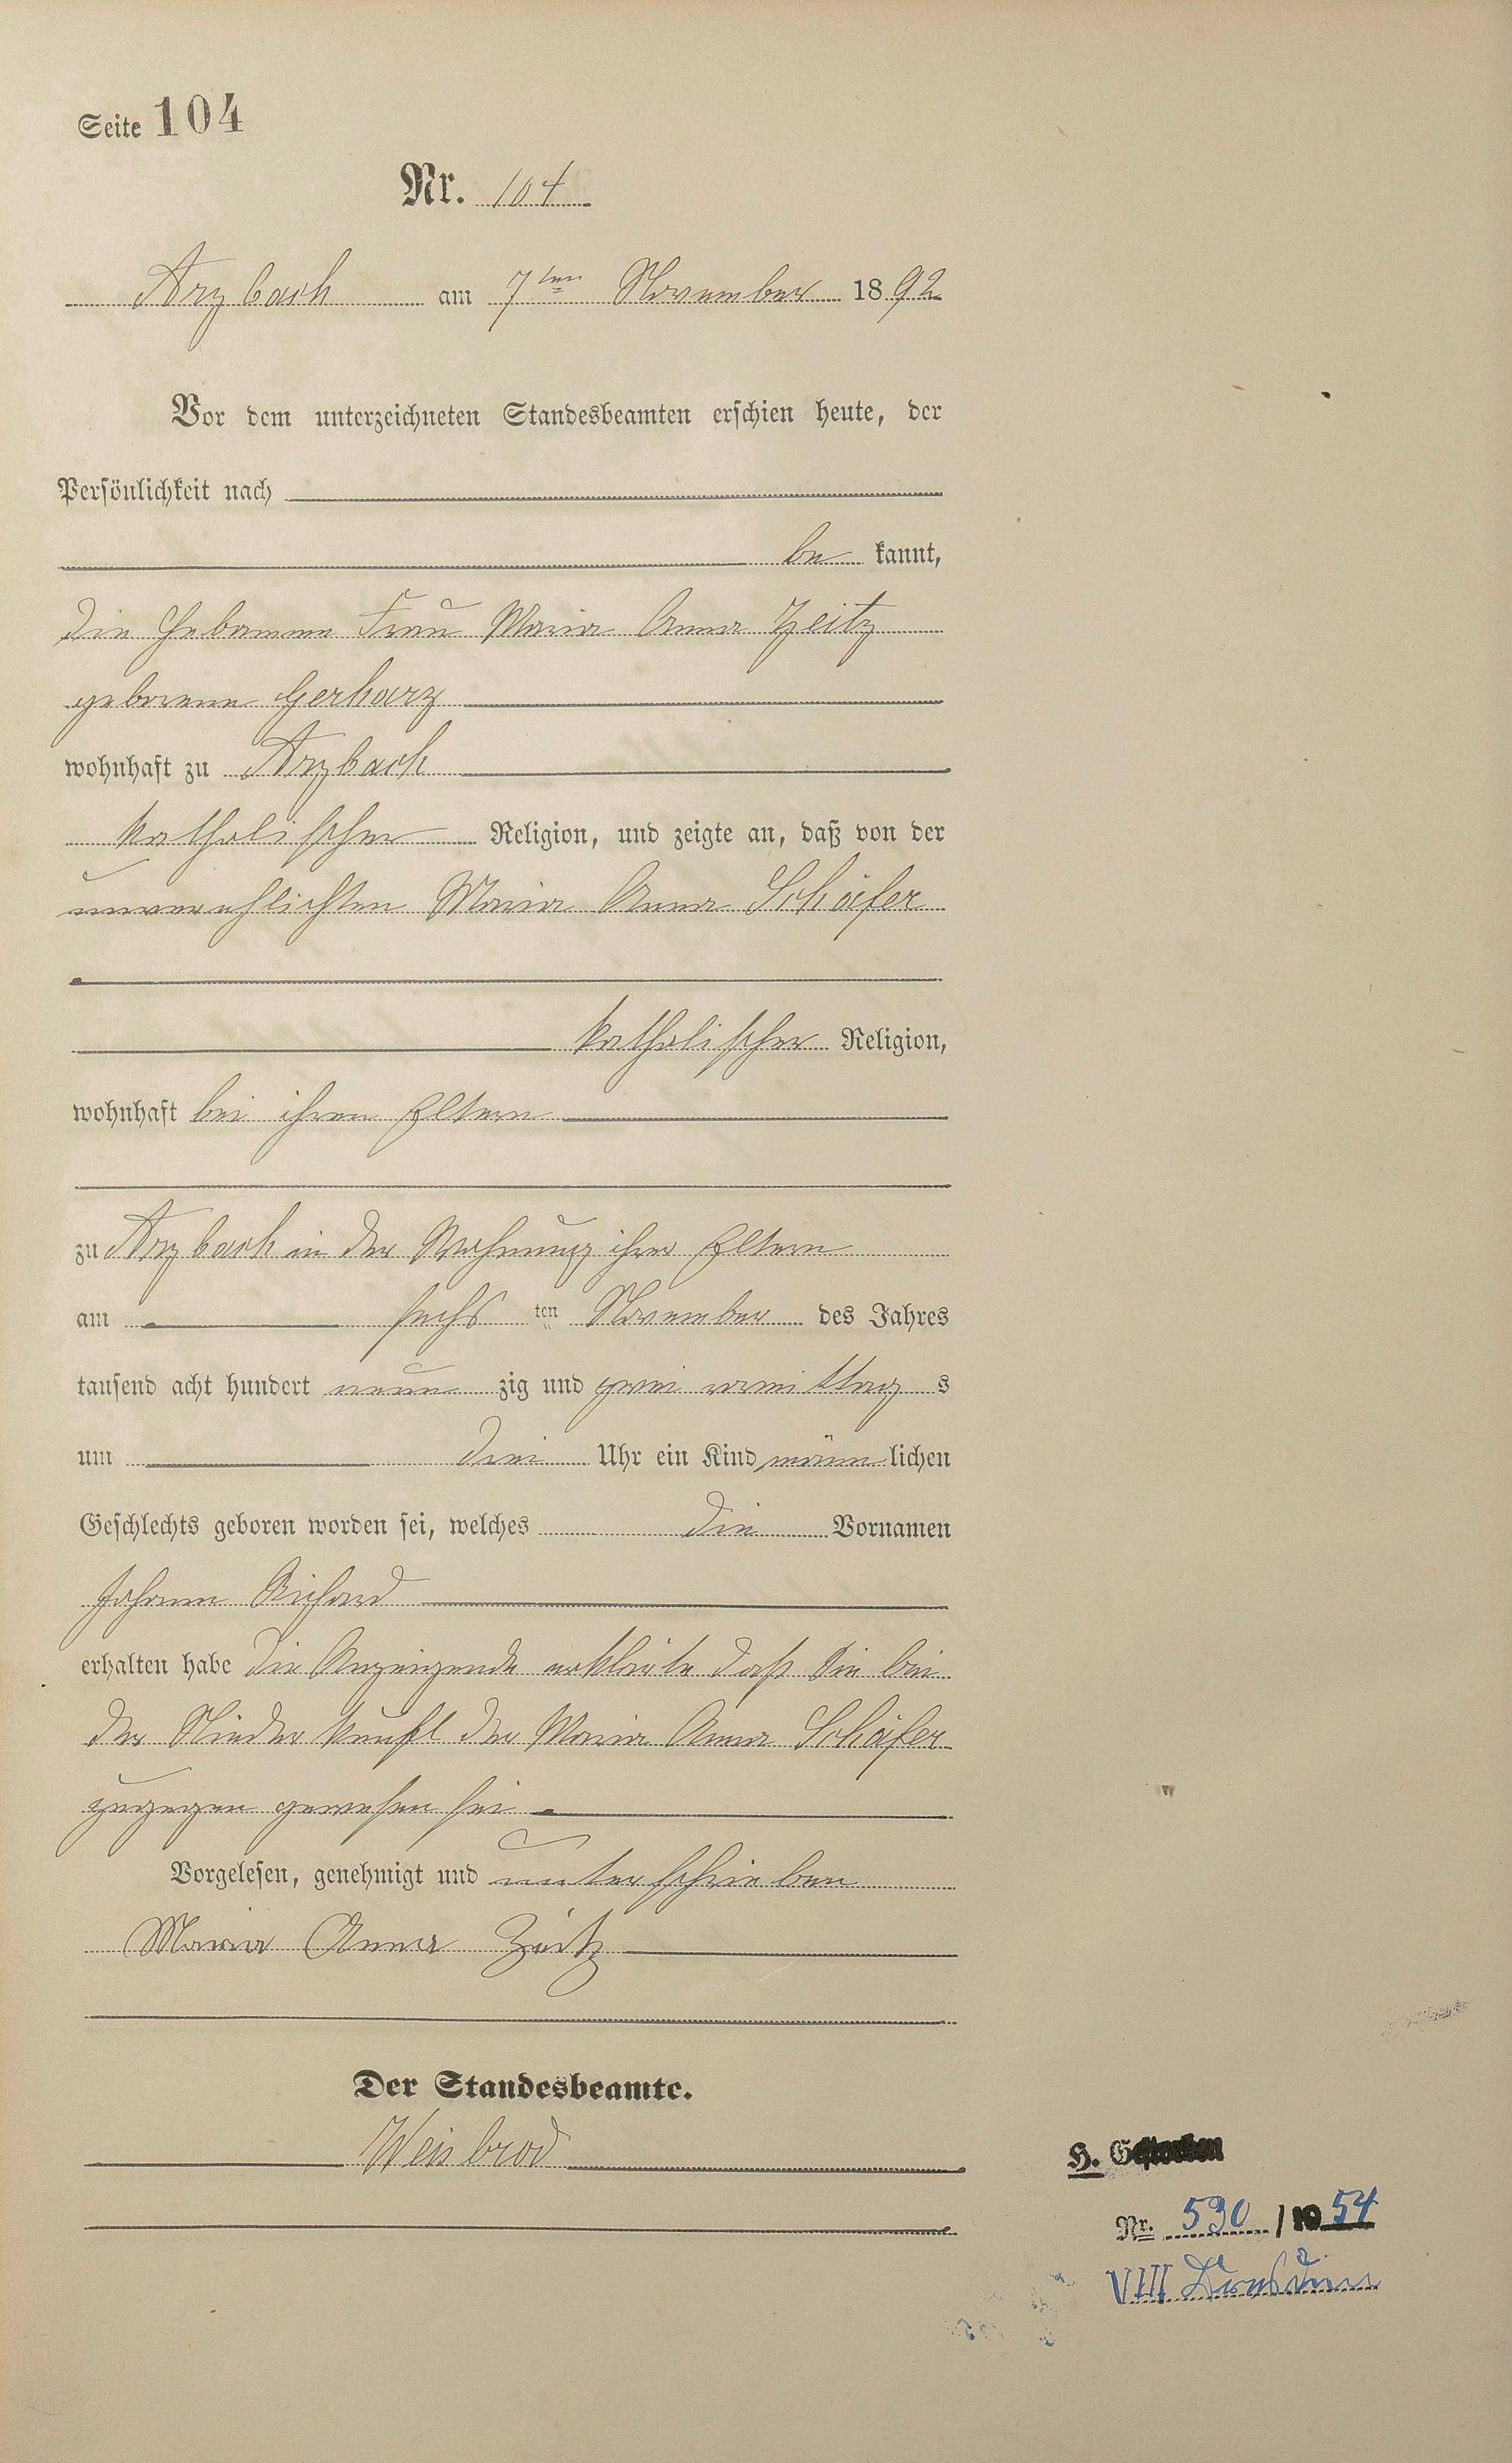 Seite 104
Nr. 104
Arzbach am 7ten November 1892
Vor dem unterzeichneten Standesbeamten erschien heute, der
Persönlichkeit nach
be kannt,
die Hebamme Frau Maria Anna Zeitz
geborene Gerharz
wohnhaft zu Arzbach
katholischer Religion, und zeigte an, daß von der
unverehlichten Maria Anna Schäfer
katholischer Religion,
wohnhaft bei ihren Eltern
zu Arzbach in der Wohnung ihrer Eltern
am sechs ten November des Jahres
tausend acht hundert neun zig und zwei vormittag s
um drei Uhr ein Kind männ lichen
Geschlechts geboren worden sei, welches die Vornamen
Johann Richard
erhalten habe die Anzeigende erklärte daß Sie bei
der Niederkunft der Maria Anna Schäfer
zugegen gewesen sei
Vorgelesen, genehmigt und unterschrieben
Maria Anna Zeitz
Der Standesbeamte.
Weisbrod
H. Gestorben
Nr. 530 / 19 54
VIII